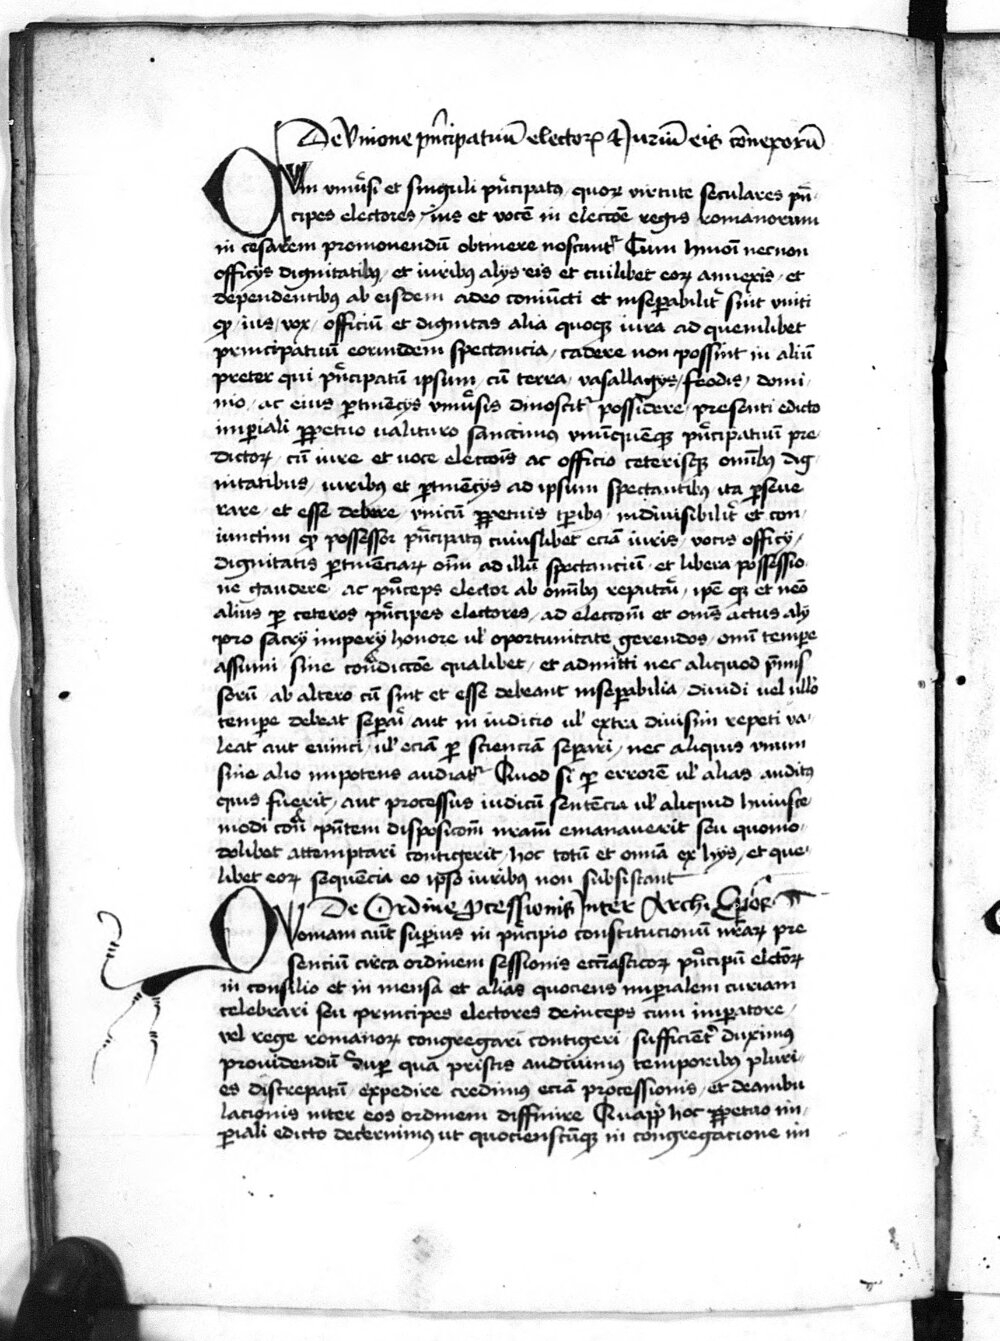 De Vnione pͥncipatuū electoꝝ & Juriū eis ɔ̄nexorū
QVm vniũsi et singuli pͥncipatꝰ quoꝝ virtute seculares pͥn-
cipes electores ius et vocē in electōe regis romanorum
in cesarem promouendū obtinere noscuntͬ Cum huiōi necnon
officijs dignitatibꝰ et iuribus alijs eis et cuilibet eoꝝ annexis et
dependentibꝰ ab eisdem adeo coniūcti et inseꝑabilitͬ sint vniti
ꝙ ius vox officiū et dignitas alia quoqꝫ iura ad quemlibet
principatuū eorundem spectancia cadere non possint in aliū
preter qui pͥncipatū ipsum cū terra vasallagijs feodis domi-
nio ac eius ꝑtinēcijs vniũsis dinoscitͬ possidere presenti edicto
imꝑiali ꝑpetuo ualituro sanccimus vnūquēqꝫ pͥncipatuū pre-
dictoꝝ cū iure et uoce electōis ac officio ceterisqꝫ omībꝰ dig-
nitatibus iuribꝰ et ꝑtinēcijs ad ipsum spectantibꝰ ita ꝑseue
rare et esse debere vnitū ꝑpetuis tꝑibꝰ indiuisibilitͬ et con-
iunctim ꝙ possessor pͥncipatꝰ cuiuslibet eciā iuris vocis officij
dignitatis ꝑtinēciaꝝ oīm ad illū spectanciū et libera possessio
ne gaudere ac pͥnceps elector ab omībꝰ reputari ipē qꝫ et nēo
alius ꝑ ceteros pͥncipes electores ad electōem et omēs actus alij
pro sacri imperij honore uł oportunitate gerendos omi tempe
assumi sine conͣdictōe qualibet et admitti nec aliquod p̄mis
sorū ab altero cū sint et esse debeant inseꝑabilia diuidi uel ullo
tempe debeat seꝑari aut in iudicio uł extra diuisim repeti va-
leat aut euinci uł eciā ꝑ scienciā seꝑari nec aliquis vnum
sine alio impotens audiatͬ Quod si ꝑ errorē uł alias auditꝰ
quis fuerit aut processus iudiciū sentēcia uł aliquid huiusce
modi conͣ pn̄tem disposicōem nr̄am emanauerit seu quomo-
dolibet attemptari contigerit hoc totū et omīa ex hijs et que
libet eoꝝ sequencia eo ipso iuribꝰ non subsistant
De Ordine ꝓcessionis Inter Archiep̄os
QVoniam circū suꝑius in pͥncipio constitucionū nr̄aꝝ pre
senciū circa ordinem sessionis eccl̄iasticoꝝ pͥncipū elctōꝝ
in consilio et in mensa et alias quociens imꝑialem curiam
celebrari seu principes electores deinceps cum imꝑatore
vel rege romanoꝝ congregari contigeri sufficientͬ duximꝰ
prouidendū suꝑ quā pristis audiuimꝰ temporibꝰ pluri-
es discrepatū expedire credimꝰ eciā processionis et deambu
lacionis inter eos ordinem diffinire Quapp̄ hoc ꝑpetuo im-
ꝑiali edicto decernimꝰ ut quocienscūqꝫ in congregacione im